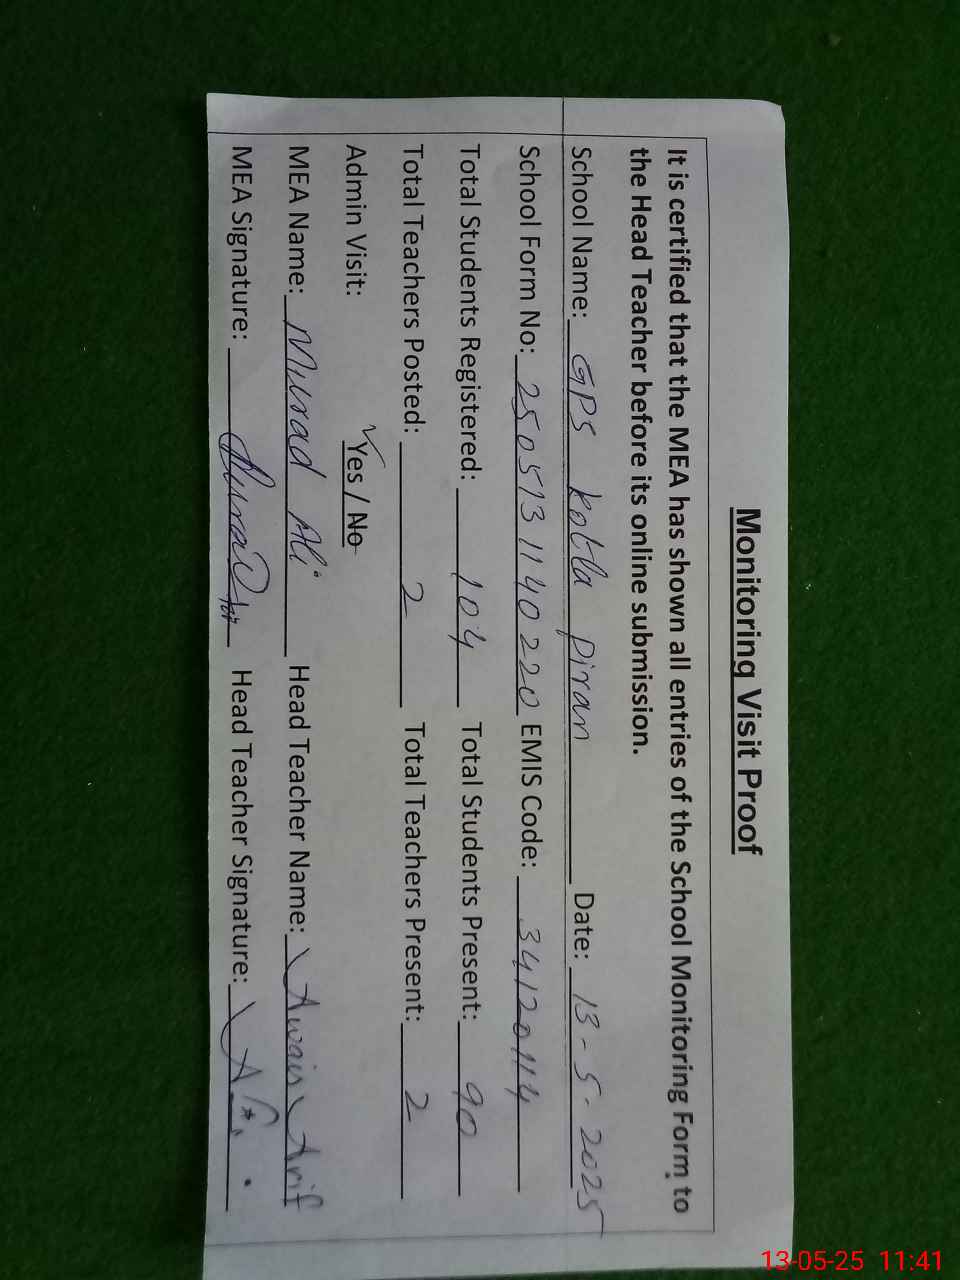 Monitoring Visit Proof
It is certified that the MEA has shown all entries of the School Monitoring Form to
the Head Teacher before its online submission.
School Name: GPS Kotla Piran Date: 13-5-2025
School Form No: 2505131140220 EMIS Code: 34120114
Total Students Registered: 104 Total Students Present: 90
Total Teachers Posted: 2 Total Teachers Present: 2
Admin Visit: Yes / No
MEA Name: Murad Ali Head Teacher Name: Arif
MEA Signature: Head Teacher Signature:
13-05-25 11:41